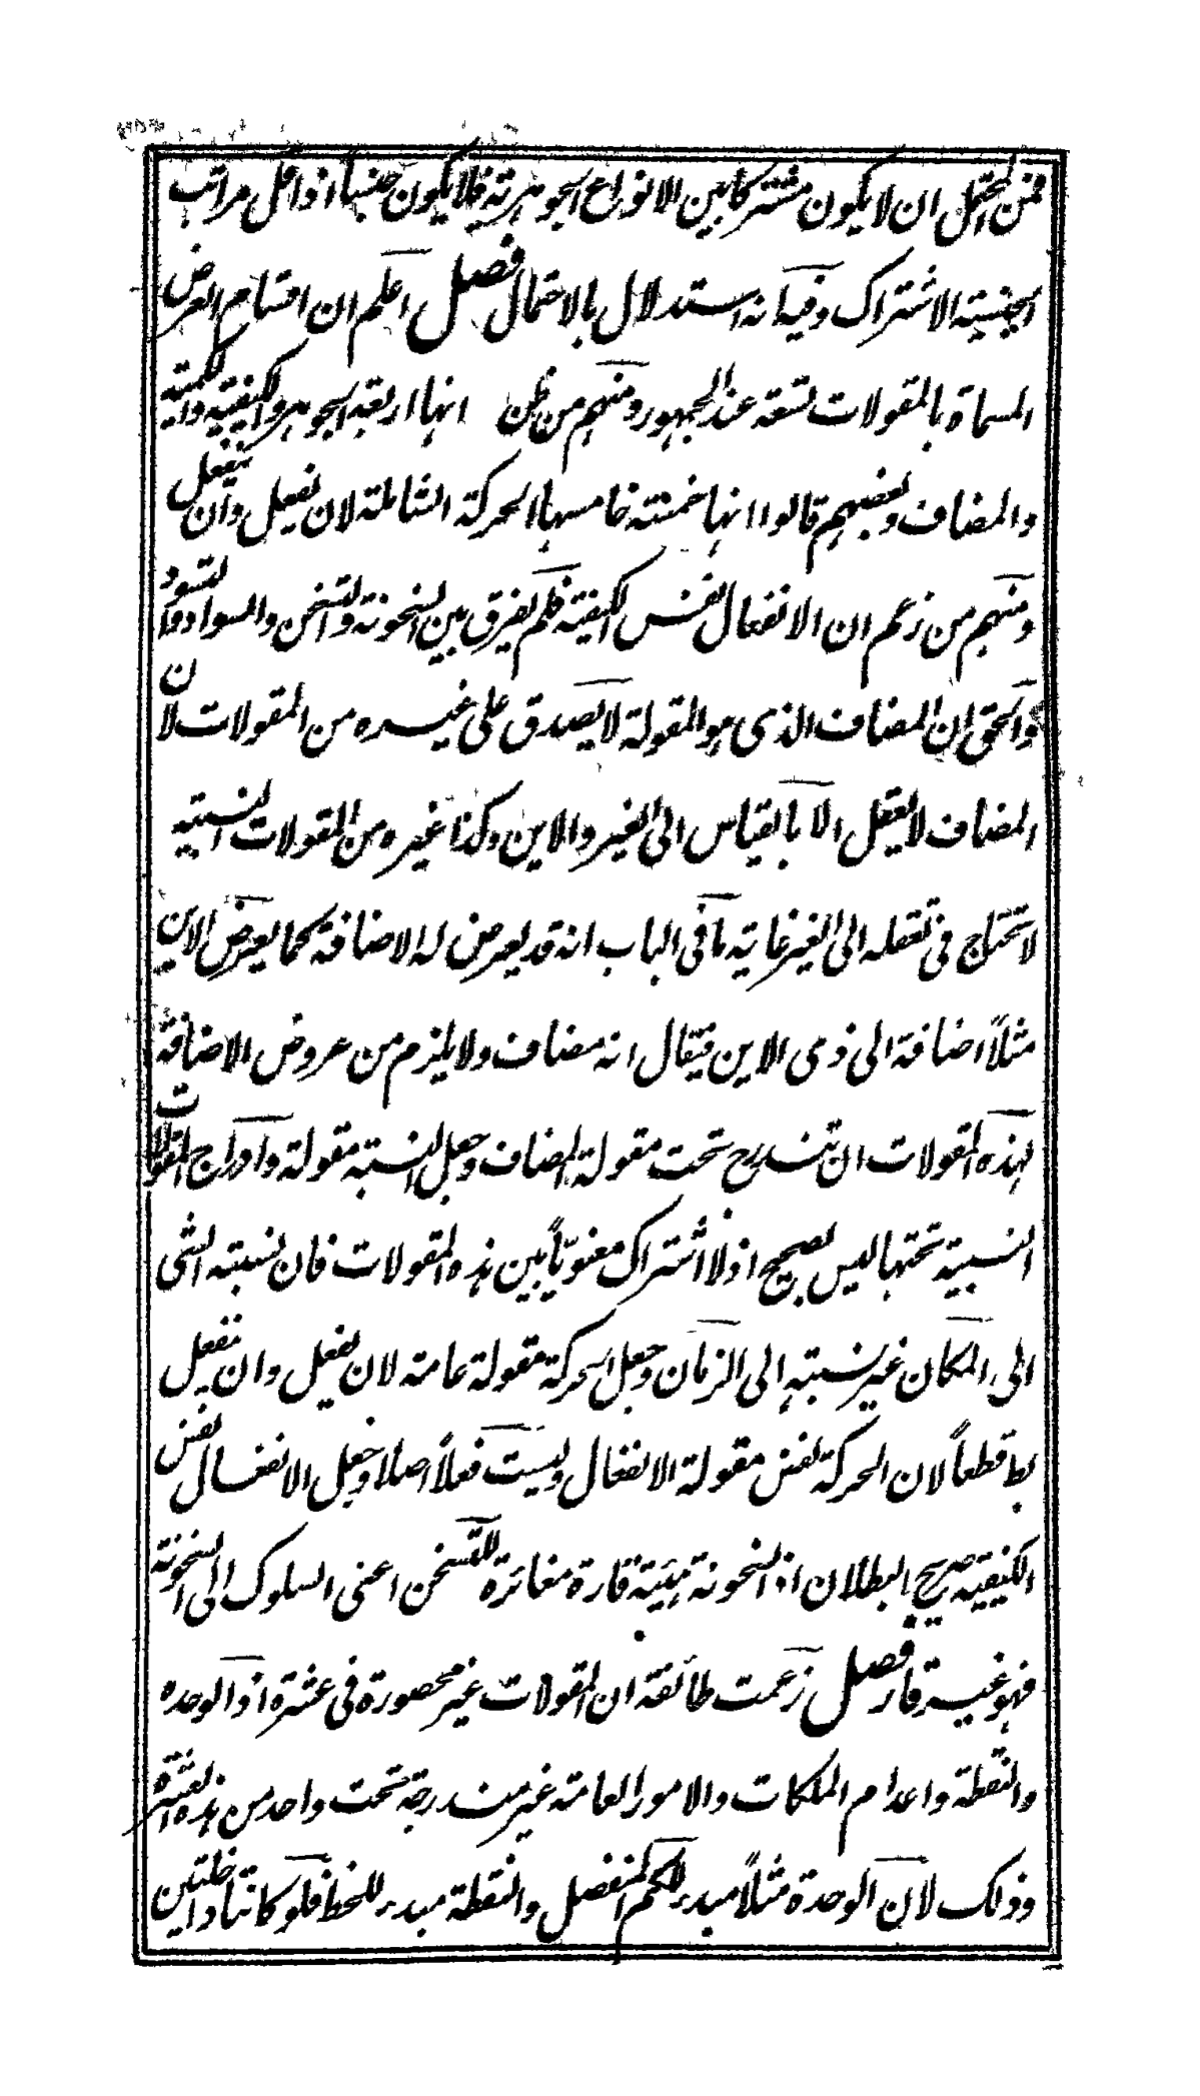 فمن المحتمل ان لا يكون مشتركا بين الانواع الجوهرية فلا يكون جنسا اذ اقل مراتب
الجنسية الاشتراك وفيه انه استدلال بالاحتمال فصل اعلم ان اقسام العرض
المسماة بالمقولات تسعة عند الجمهور ومنهم من ظن انها اربعة الجوهر والكيفية والكمية
والمضاف وبعضهم قالوا انها خمسة خامسها الحركة الشاملة لان يفعل وان ينفعل
ومنهم من زعم ان الانفعال نفس الكيفية فلم يفرق بين السخونة والتسخن والسواد والتسود
والحق ان المضاف الذى هو المقولة لا يصدق على غيره من المقولات لان
المضاف لا يعقل الا بالقياس الى الغير والاين وكذا غيره من المقولات النسبية
لا تحتاج فى تعقله الى الغير غاية ما فى الباب انه قد يعرض له الاضافة كما يعرض الاين
مثلاً اضافة الى ذى الاين فيقال انه مضاف ولا يلزم من عروض الاضافة
لهذه المقولات ان تندرج تحت مقولة المضاف وجعل النسبة مقولة وادراج المقولات
النسبية تحتها ليس بصحيح اذ لا اشتراك معنوياً بين هذه المقولات فان نسبة الشى
الى المكان غير نسبته الى الزمان وجعل الحركة مقولة عامة لان يفعل وان ينفعل
بط قطعاً لان الحركة نفس مقولة الانفعال وليست فعلاً اصلا وجعل الانفعال نفس
الكيفية صريح البطلان اذ السخونة هيئية قارة مغائرة للتسخن اعنى السلوك الى السخونة
فهو غير قار فصل زعمت طائفة ان المقولات غير محصورة فى عشرة اذ الوحده
والنقطة واعدام الملكات والامور العامة غير مندرجة تحت واحد من هذه العشرة
وذلك لان الوحدة مثلاً مبدء للكم المنفصل والنقطة مبدء للخط فلو كانتا داخلتين